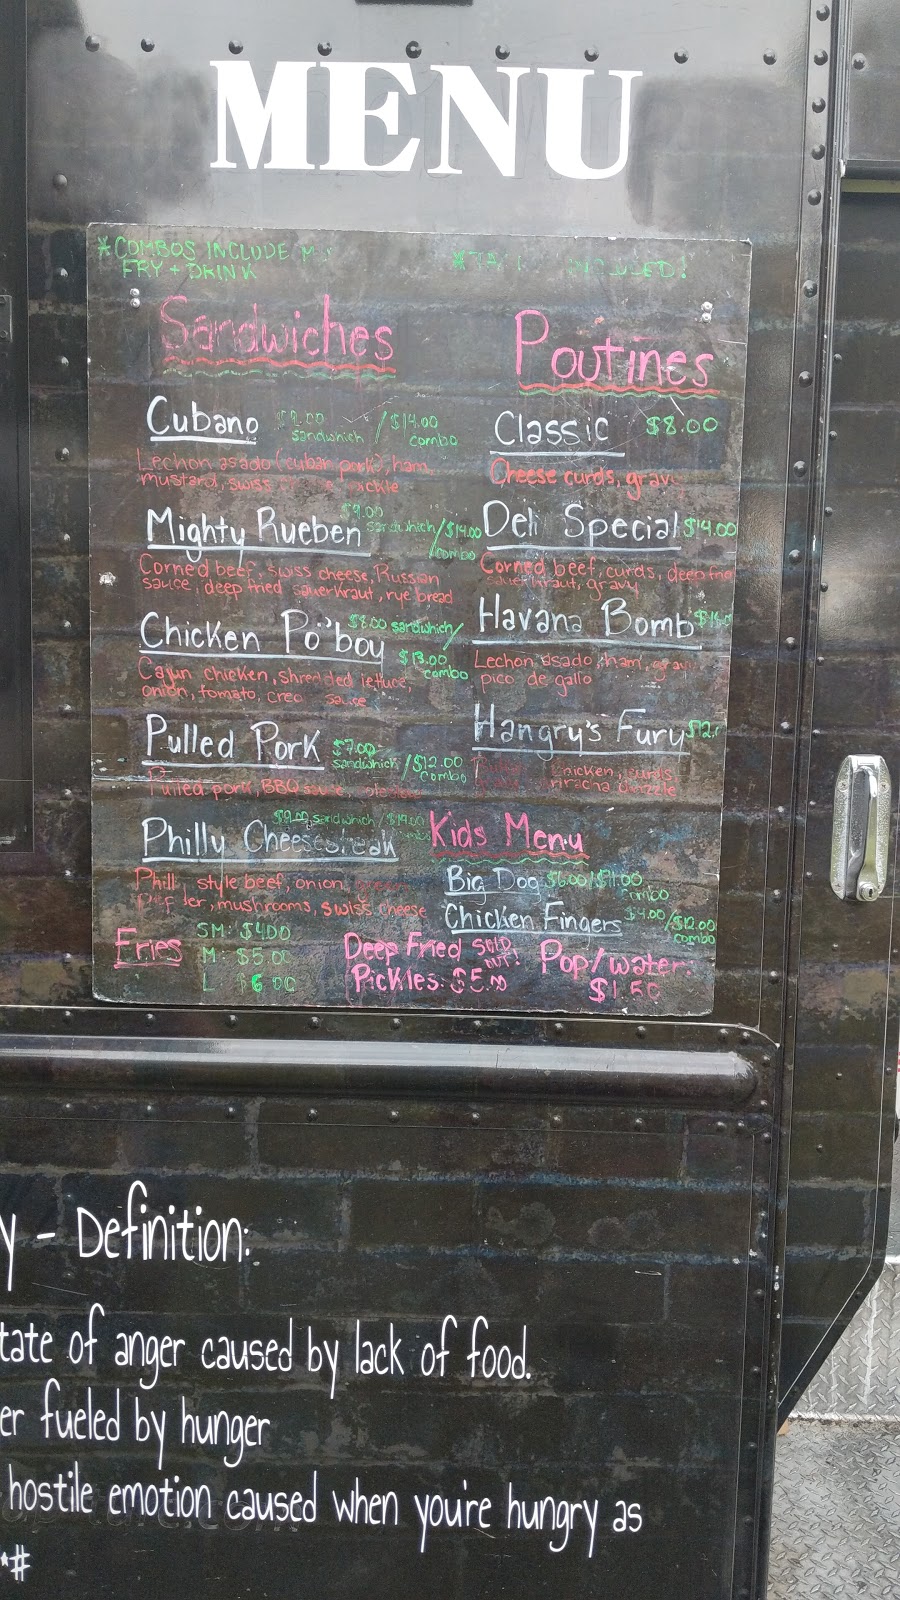 MENU
*COMBOS INCLUDE
FRY + DRINK
INCLUDED!
Sandwiches
Cubano
sandwhich / $14.00 combo
Lechon asado (cuban pork), ham,
mustard, swiss pickle
Mighty Rueben
$9.00 sandwhich / $14.00 combo
Corned beef, swiss cheese, Russian
sauce, deep fried sauerkraut, rye bread
Chicken Po'boy
$8.00 sandwhich / $13.00 combo
Cajun chicken, shredded lettuce,
onion, tomato, sauce
Pulled Pork
$7.00 sandwhich / $12.00 combo
Pulled pork, BBQ sauce,
Philly Cheesesteak
$9.00 sandwhich / $14.00
style beef, onion,
mushrooms, swiss cheese
Poutines
Classic $8.00
Cheese curds, gravy
Deli Special $14.00
Corned beef, curds, deep
sauerkraut, gravy
Havana Bomb
Lechon asado, ham, gravy
pico de gallo
Hangry's Fury
chicken, curds
sriracha drizzle
Kids Menu
Big Dog $6.00/$11.00
combo
Chicken Fingers /$12.00
combo
Fries
SM: $4.00
M: $5.00
L $6.00
Deep Fried SOLD OUT!
Pickles: $5.00
Pop/water:
$1.50
y - Definition:
tate of anger caused by lack of food.
er fueled by hunger
hostile emotion caused when you're hungry as
*#